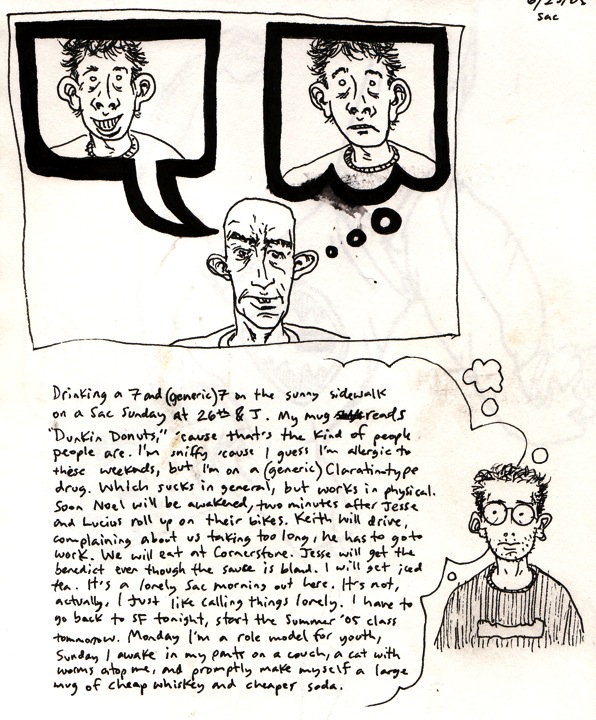 Sac
Drinking a 7 and (generic) 7 on the sunny sidewalk
on a Sac Sunday at 26th & J. My mug reads
"Dunkin Donuts," 'cause that's the kind of people
people are. I'm sniffy 'cause I guess I'm allergic to
these weekends, but I'm on a (generic) Claratin-type
drug. Which sucks in general, but works in physical.
Soon Noel will be awakened, two minutes after Jesse
and Lucius roll up on their bikes. Keith will drive,
complaining about us taking too long, he has to go to
work. We will eat at Cornerstone. Jesse will get the
benedict even though the sauce is bland. I will get iced
tea. It's a lonely Sac morning out here. It's not,
actually, I just like calling things lonely. I have to
go back to SF tonight, start the Summer '05 class
tommorrow. Monday I'm a role model for youth,
Sunday I awake in my pants on a couch, a cat with
worms atop me, and promptly make myself a large
mug of cheap whiskey and cheaper soda.